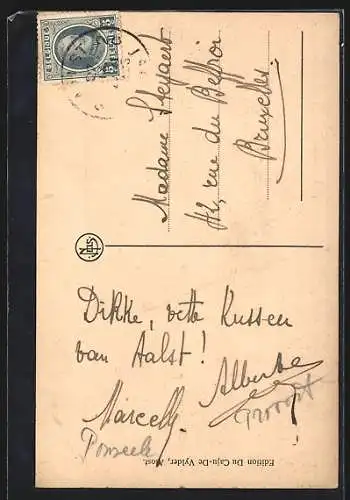 Madame Steyaert
42, rue du Beffroi
Bruxelles.
Dikke, vette Kussen
van Aalst!
Alberte
Marcell
Edition Du Caju-De Vylder, Alost.